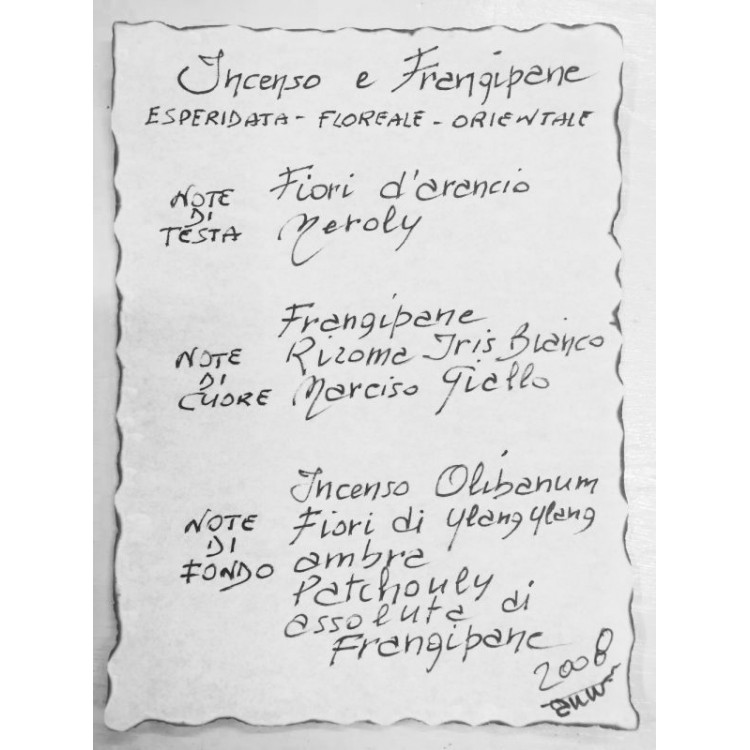 Incenso e Frangipane
ESPERIDATA - FLOREALE - ORIENTALE
NOTE
DI
TESTA
Fiori d'arancio
Neroly
NOTE
DI
CUORE
Frangipane
Rizoma Iris Bianco
Narciso Giallo
NOTE
DI
FONDO
Incenso Olibanum
Fiori di Ylang Ylang
ambra
Patchouly
assoluta di
Frangipane
2008